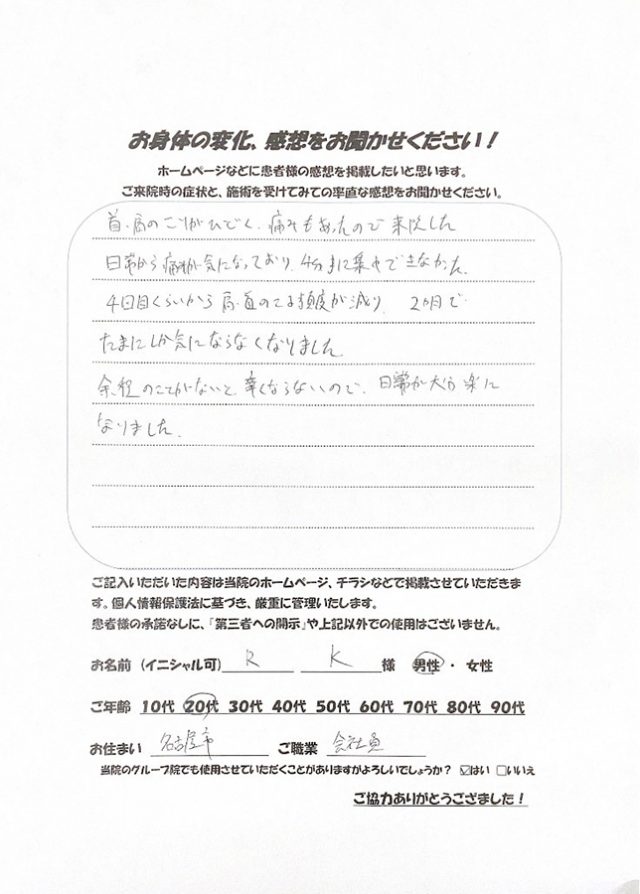 お身体の変化、感想をお聞かせください！
ホームページなどに患者様の感想を掲載したいと思います。
ご来院時の症状と、施術を受けてみての率直な感想をお聞かせください。
首・肩のこりがひどく、痛みもあったので来院した
日常から痛みが気になっており、
4回目くらいから肩・首のこる頻度が減り、2カ月で
たまにしか気にならなくなりました
余程のことがないと辛くならないので、日常が大分楽に
なりました。
ご記入いただいた内容は当院のホームページ、チラシなどで掲載させていただきま
す。個人情報保護法に基づき、厳重に管理いたします。
患者様の承諾なしに、「第三者への開示」や上記以外での使用はございません。
お名前（イニシャル可） R K 様 男性・女性
ご年齢 10代 20代 30代 40代 50代 60代 70代 80代 90代
お住まい 名古屋市 ご職業 会社員
当院のグループ院でも使用させていただくことがありますがよろしいでしょうか？ ☑はい □いいえ
ご協力ありがとうござました！